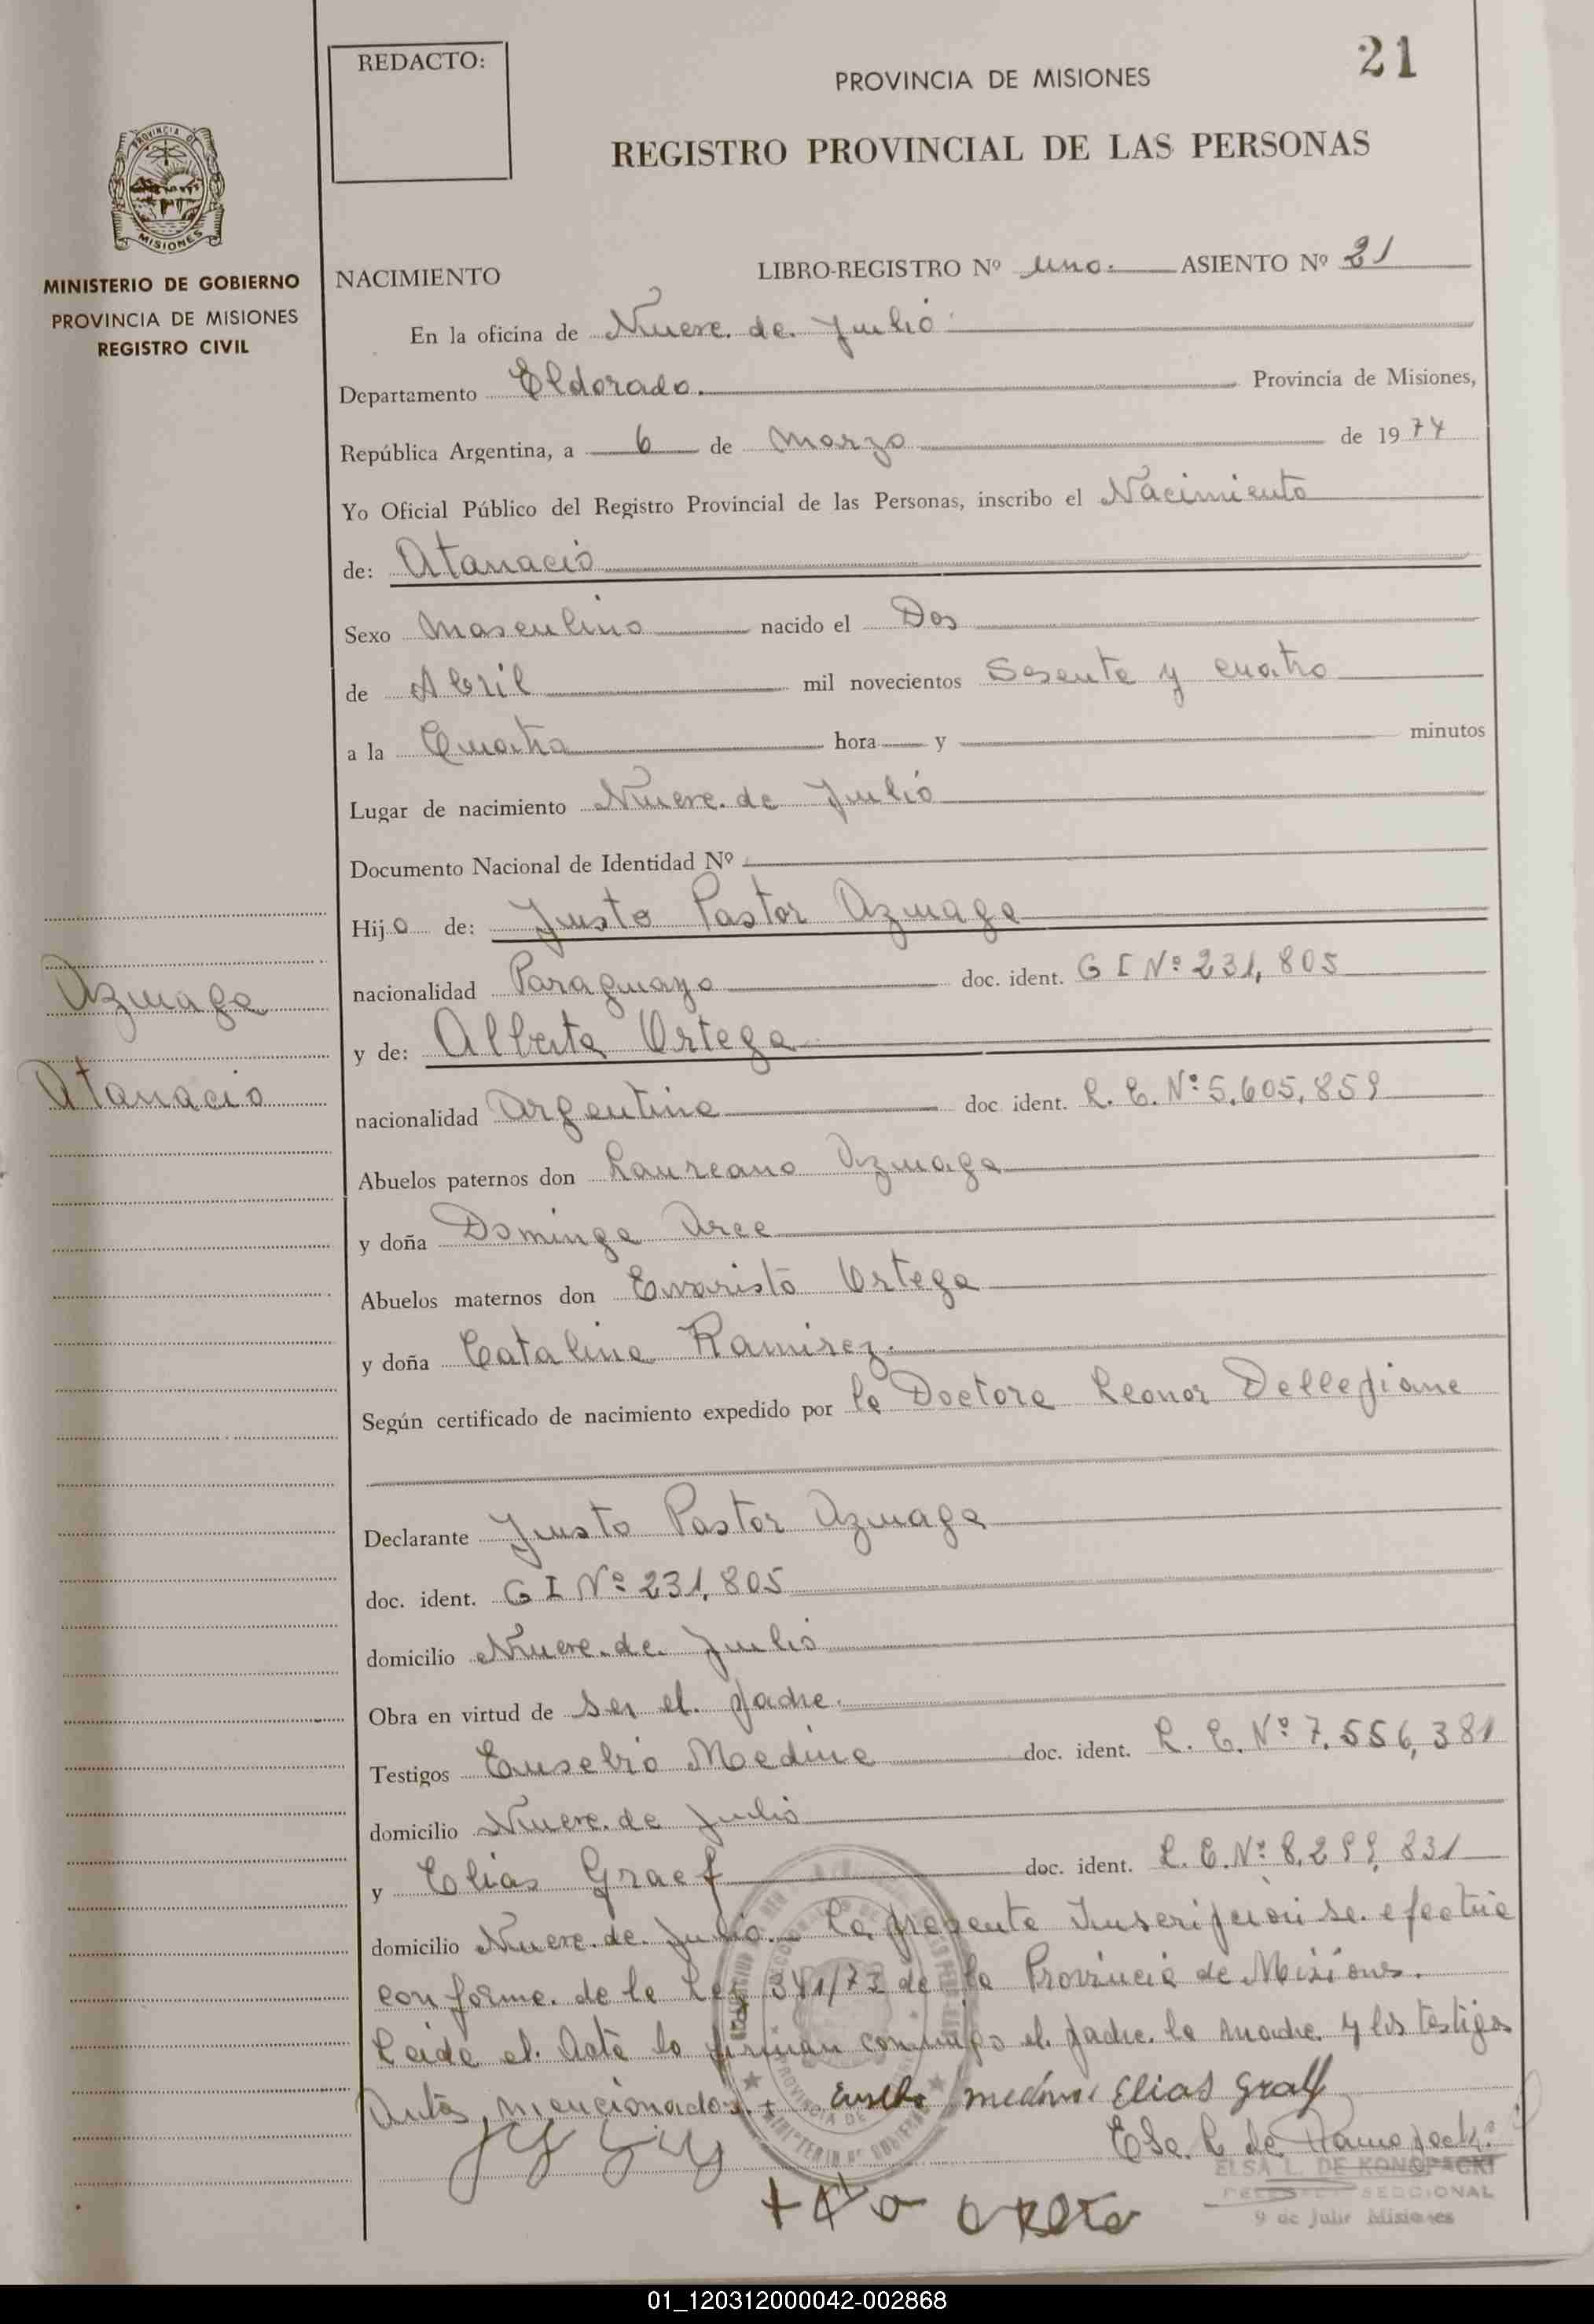 21
REDACTO:
PROVINCIA DE MISIONES
REGISTRO PROVINCIAL DE LAS PERSONAS
PROVINCIA DE
MISIONES
MINISTERIO DE GOBIERNO
PROVINCIA DE MISIONES
REGISTRO CIVIL
NACIMIENTO LIBRO-REGISTRO Nº uno. ASIENTO Nº 21
En la oficina de Nueve de Julio
Departamento Eldorado. Provincia de Misiones,
República Argentina, a 6 de Marzo de 1974
Yo Oficial Público del Registro Provincial de las Personas, inscribo el Nacimiento
de: Atanacio
Sexo Masculino nacido el Dos
de Abril mil novecientos Sesenta y cuatro
a la Cuatro hora y minutos
Lugar de nacimiento Nueve de Julio
Documento Nacional de Identidad Nº
Hijo de: Justo Pastor Azuaga
nacionalidad Paraguayo doc. ident. C I Nº 231,805
y de: Alberta Ortega
nacionalidad Argentina doc ident. L. C. Nº 5.605,859
Abuelos paternos don Laureano Azuaga
y doña Dominga Arce
Abuelos maternos don Evaristo Ortega
y doña Catalina Ramirez.
Según certificado de nacimiento expedido por la Doctora Leonor Dellepiane
Azuaga
Atanacio
Declarante Justo Pastor Azuaga
doc. ident. C I Nº 231,805
domicilio Nueve de Julio
Obra en virtud de ser el padre.
Testigos Eusebio Medina doc. ident. L. E. Nº 7.556,381
domicilio Nueve de Julio
y Elias Graef doc. ident. L. E. Nº 8.299,831
domicilio Nueve de Julio. La presente Inscripción se efectúa
conforme de la Ley 341/73 de la Provincia de Misiones.
Leida el Acta la firman conmigo el padre la madre y los testigos
Antes mencionados.
Elias Graff
ELSA L. DE KONOPACKI
SECCIONAL
9 de Julio Misiones
01_120312000042-002868